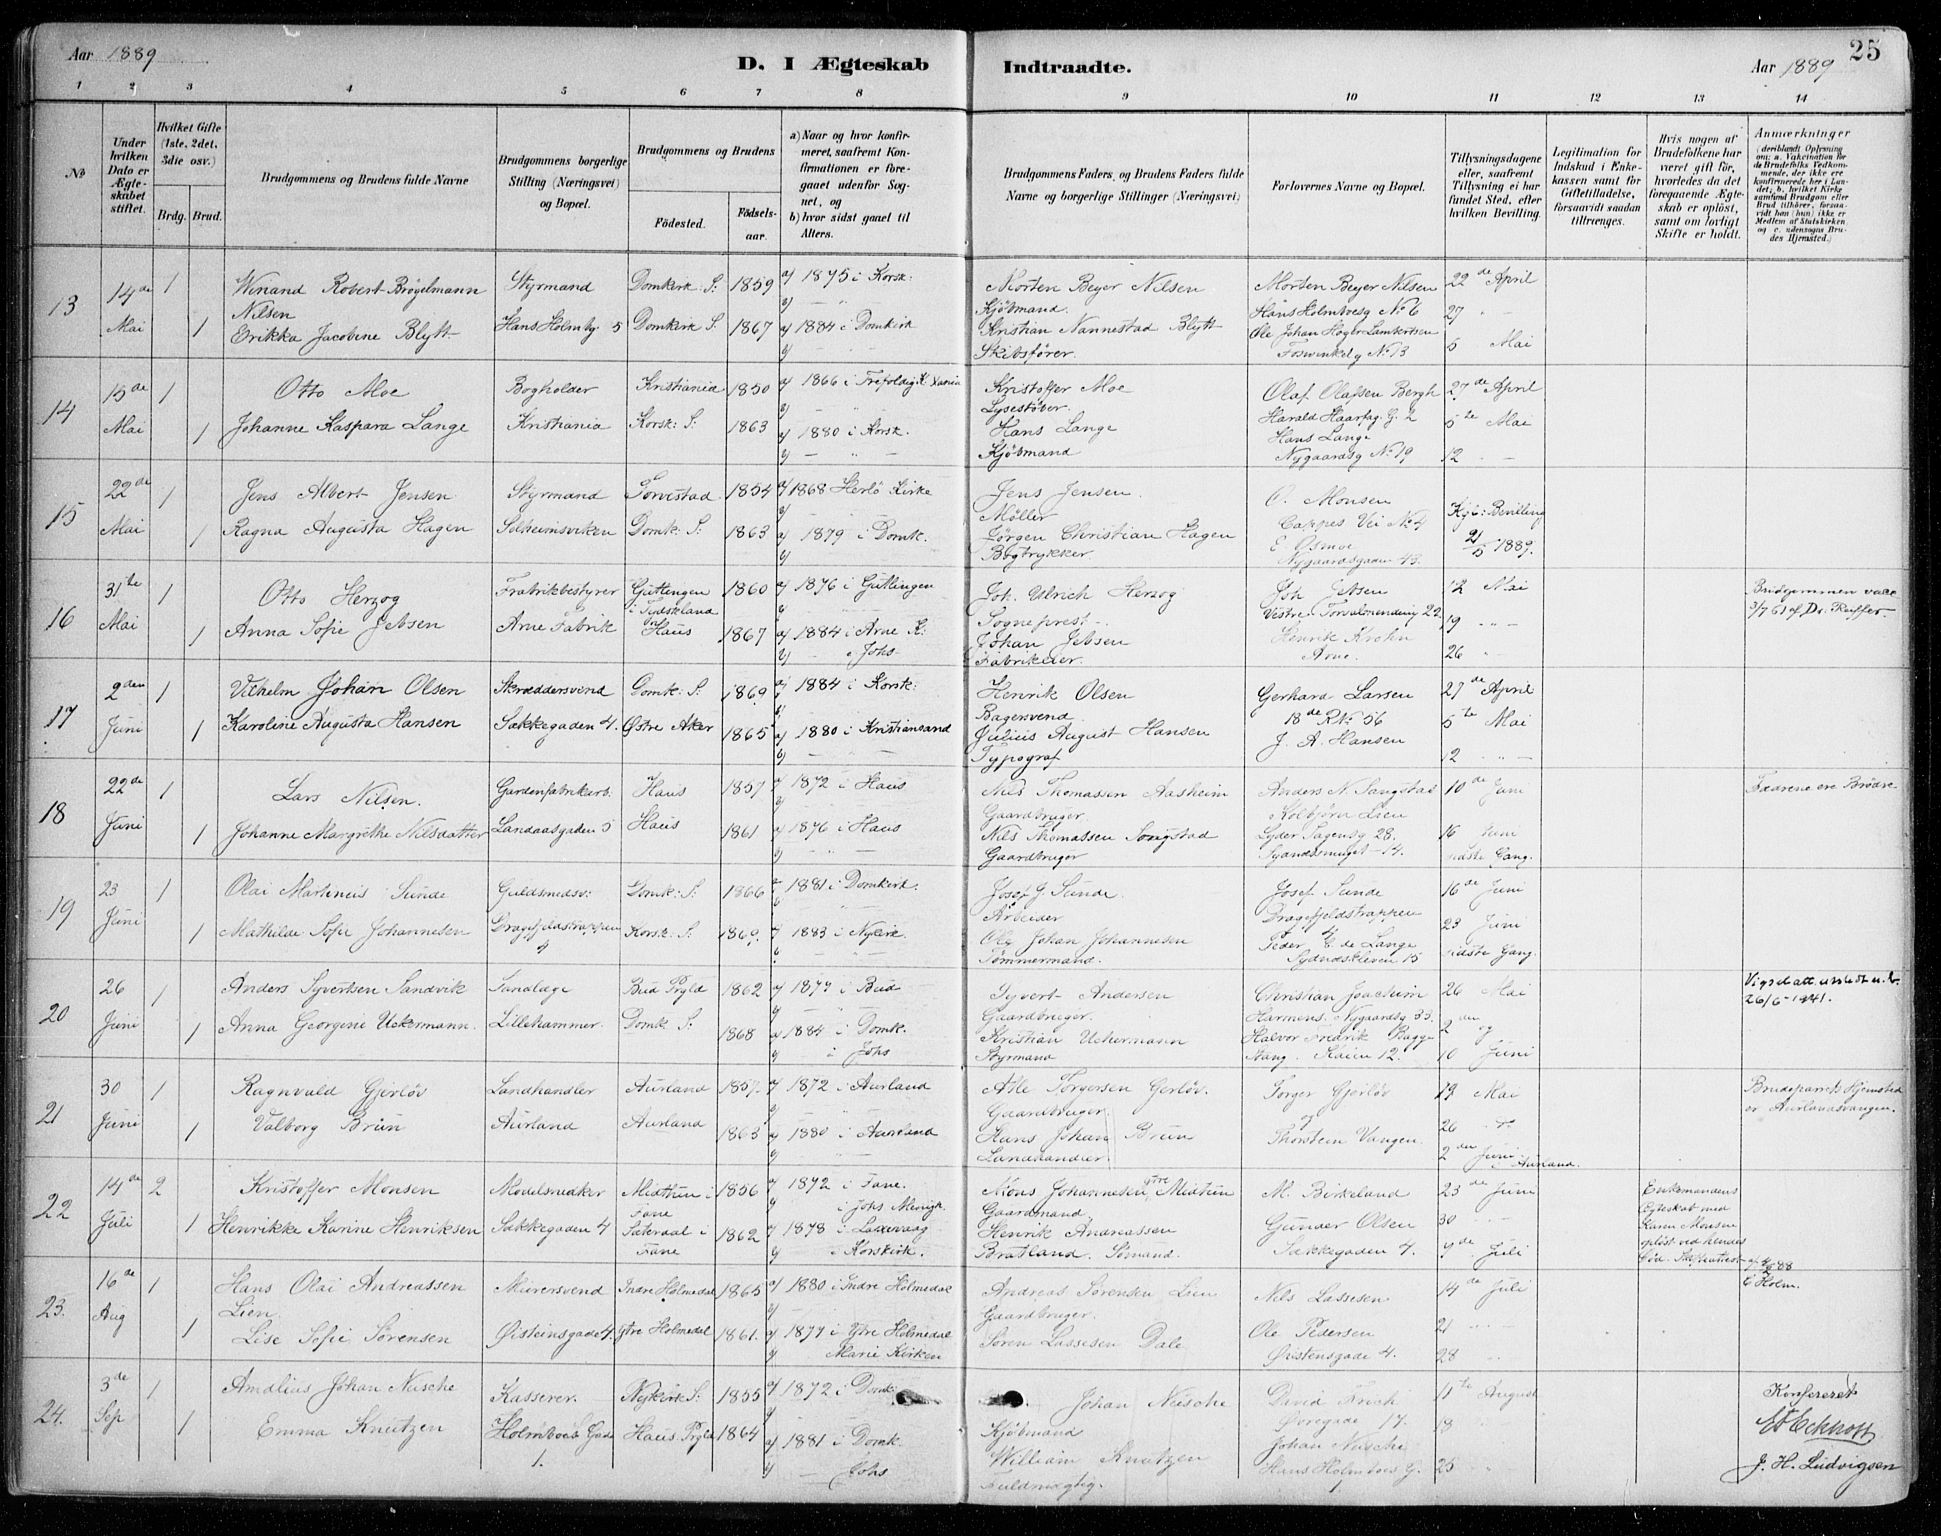 Aar 1889
D. I Ægteskab
Indtraadte.
Aar 1889
25
1 2 3 4 5 6 7 8 9 10 11 12 13 14
No
Under hvilken Dato er Ægteskabet stiftet.
Hvilket Gifte (1ste, 2det, 3die osv.)
Brdg. Brud.
Brudgommens og Brudens fulde Navne
Brudgommens borgerlige Stilling (Næringsvei) og Bopæl.
Brudgommens og Brudens
Fødested.
Fødselsaar.
a) Naar og hvor konfirmeret, saafremt Konfirmationen er foregaaet udenfor Sognet, og
b) hvor sidst gaaet til Alters.
Brudgommens Faders, og Brudens Faders fulde Navne og borgerlige Stillinger (Næringsvei)
Forlovernes Navne og Bopæl.
Tillysningsdagene eller, saafremt Tillysning ei har fundet Sted, efter hvilken Bevilling.
Legitimation for Indskud i Enkekassen samt for Giftetilladelse, forsaavidt saadan tiltrænges.
Hvis nogen af Brudefolkene har været gift før, hvorledes da det foregaaende Ægteskab er opløst, samt om lovligt Skifte er holdt.
Anmærkninger (deriblandt Oplysning om: a. Vakcination for de Brudefolks Vedkommende, der ikke ere konfirmerede her i Landet; b. hvilket Kirkesamfund Brudgom eller Brud tilhører, forsaavidt han (hun) ikke er Medlem af Statskirken, og c. udensogns Brudes Hjemsted.)
13 14de Mai 1 Winand Robert Brögelmann Nilsen Styrmand Domkirk. S. 1859 a) 1875 i Korsk: Morten Beyer Nilsen Kjøbmand. Morten Beyer Nilsen Hans Holmboesg No 6 22de April 27
1 Erikka Jacobine Blytt Hans Holmbg. 5 Domkirk S. 1867 a) 1884 i Domkirk Kristian Nannestad Blytt Skibsfører. Ole Johan Høger Lambertsen Fosvinkelg No 13 5 Mai
14 15de Mai 1 Otto Moe Bogholder Kristiania 1850 a) 1866 i Trefoldig. K. Xania Kristoffer Moe Lysestøber. Olaf Olafsen Bergh Harald Haarfag. G. 2 27de April
1 Johanne Kaspara Lange Kristiania Korsk: S: 1863 a) 1880 i Korsk. Hans Lange Kjøbmand Hans Lange Nygaardsg No 19 5te Mai 12
15 22de Mai 1 Jens Albert Jensen Styrmand Torvestad 1854 a) 1868 Herlö Kirke Jens Jensen. Møller O. Monsen Cappes Vei No 4 Kgl: Bevilling
1 Ragna Augusta Hagen Solheimsviken Domk: S: 1863 a) 1879 i Domk. Jørgen Christian Hagen Bogtrykker E Osmoe Nygaardsgaden 43. 21/5 1889.
16 31te Mai 1 Otto Herzog Fabrikbestyrer Güttingen i Tydskland 1860 a) 1876 i Güttingen Joh. Ulrich Herzog Sogneprest. Joh Jebsen Vestre Torvalmending 22 12 Mai 19 Brudgommen vacc 3/7 61 af Dr. Ruffer.
1 Anna Sofie Jebsen Arne Fabrik Haus 1867 a) 1884 i Arne K: b) i Johs Johan Jebsen Fabrikeier. Henrik Krohn Arne. 26
17 2den Juni 1 Vilhelm Johan Olsen Skræddersvend Domk: S: 1869 a) 1884 i Korsk: Henrik Olsen Bagersvend Gerhard Larsen 18de R No 56 27de April
1 Karoline Augusta Hansen Sækkegaden 4. Østre Aker 1865 a) 1880 i Kristiansand Julius August Hansen Typograf J. A. Hansen 5te Mai 12
18 22de Juni 1 Lars Nilsen. Gardenfabrikarb. Haus 1857 a) 1872 i Haus Nils Thomassen Aasheim Gaardbruger Anders N. Songstad Kolbjørn Lien 10de Juni Fædrene ere Brødre.
1 Johanne Margrethe Nilsdatter Landaasgaden 5 Haus 1861 a) 1876 i Haus Nils Thomassen Songstad Gaardbruger Lyder Sagensg 28. 16 Juni sidste Gang.
19 23 Juni 1 Olai Martineus Sunde Guldsmedsv: Domk: S. 1866 a) 1881 i Domkirk. Josef J. Sunde Arbeider Josef Sunde Dragefjeldstrappen 4 16de Juni
1 Mathilde Sofie Johannesen Dragefjeldstrappen 4 Korsk: S: 1869. a) 1883 i Nykirk. Ole Johan Johannesen Tømmermand. Peder C. de Lange Sydneskleven 15 23 Juni sidste Gang.
20 26 Juni 1 Anders Syvertsen Sandvik Tandlæge Bud Prgld 1862 a) 1877 i Bud Syvert Andersen Gaardbruger. Christian Joachim Harmens. Nygaardsg 33. 26 Mai Vigselatt. utstedt u. b. 26/6-1941.
1 Anna Georgine Uckermann. Lillehammer. Domk. S: 1868 a) 1884 i Domk. b) i Johs Kristian Uchermann Styrmand Halvor Fredrik Bagge Stang. Kaien 12. 2den og 10 Juni
21 30 Juni 1 Ragnvald Gjerløv Landhandler Aurland 1857. a) 1872 i Aurland Atle Torgersen Gerløv. Gaardbruger Torger Gjerløv og 19 Mai 26 Brudeparrets Hjemsted er Aurlandsvangen.
1 Valborg Brun Aurland Aurland 1863 a) 1880 i Aurland Hans Johan Brun Landhandler. Thorstein Vangen. 2den Juni i Aurland.
22 14de Juli 2 Kristoffer Monsen Modelsnedker Midthun i Fane 1856 a) 1872 i Fane. b) i Johs Menigh. Mons Johannesen ytre Midtun Gaardmand. M. Birkeland 23de Juni 30 Enkemandens Ægteskab med Karen Monsen opløst ved hendes Død. Skifteattest af 4/2 88 C Holm.
1 Henrikke Karine Henriksen Sækkegaden 4 Sæterdal i Fane 1862 a) 1878 i Laxevaag b) i Korskirk. Henrik Andreassen Bratland. Sømand. Gunder Olsen Sækkegaden 4. 7de Juli
23. 16de Aug 1 Hans Olai Andreassen Lien. Murersvend Indre Holmedal 1865 a) 1880 i Indre Holmedal Andreas Sørensen Lien Gaardbruger Nils Lassesen 14de Juli 21
1 Lise Sofie Sørensen Øisteinsgade 4 Ytre Holmedal 1861. a) 1877 i Ytre Holmedal b) Marie Kirken Søren Lassesen Dale Ole Pedersen Øisteinsgade 4. 28
24. 3de Sep 1 Amdlius Johan Nitsche Kasserer. Nykirk S: 1855 a) 1872 i Domk. Johan Nitsche Kjøbmand David Frich Øvregade 17. 11te August 18 Konfereret
1 Emma Knutzen Holmboes Gade 1. Haus Prgld 1864 a) 1881 i Domk. b) Johs William Knutzen Fuldmægtig. Johan Nitsche Hans Holmboes G. 1 25 J. H. Ludvigsen